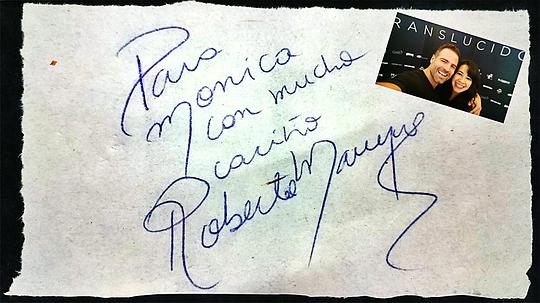 Para
Monica
con mucho
cariño
Roberto Manrique
TRANSLUCIDO